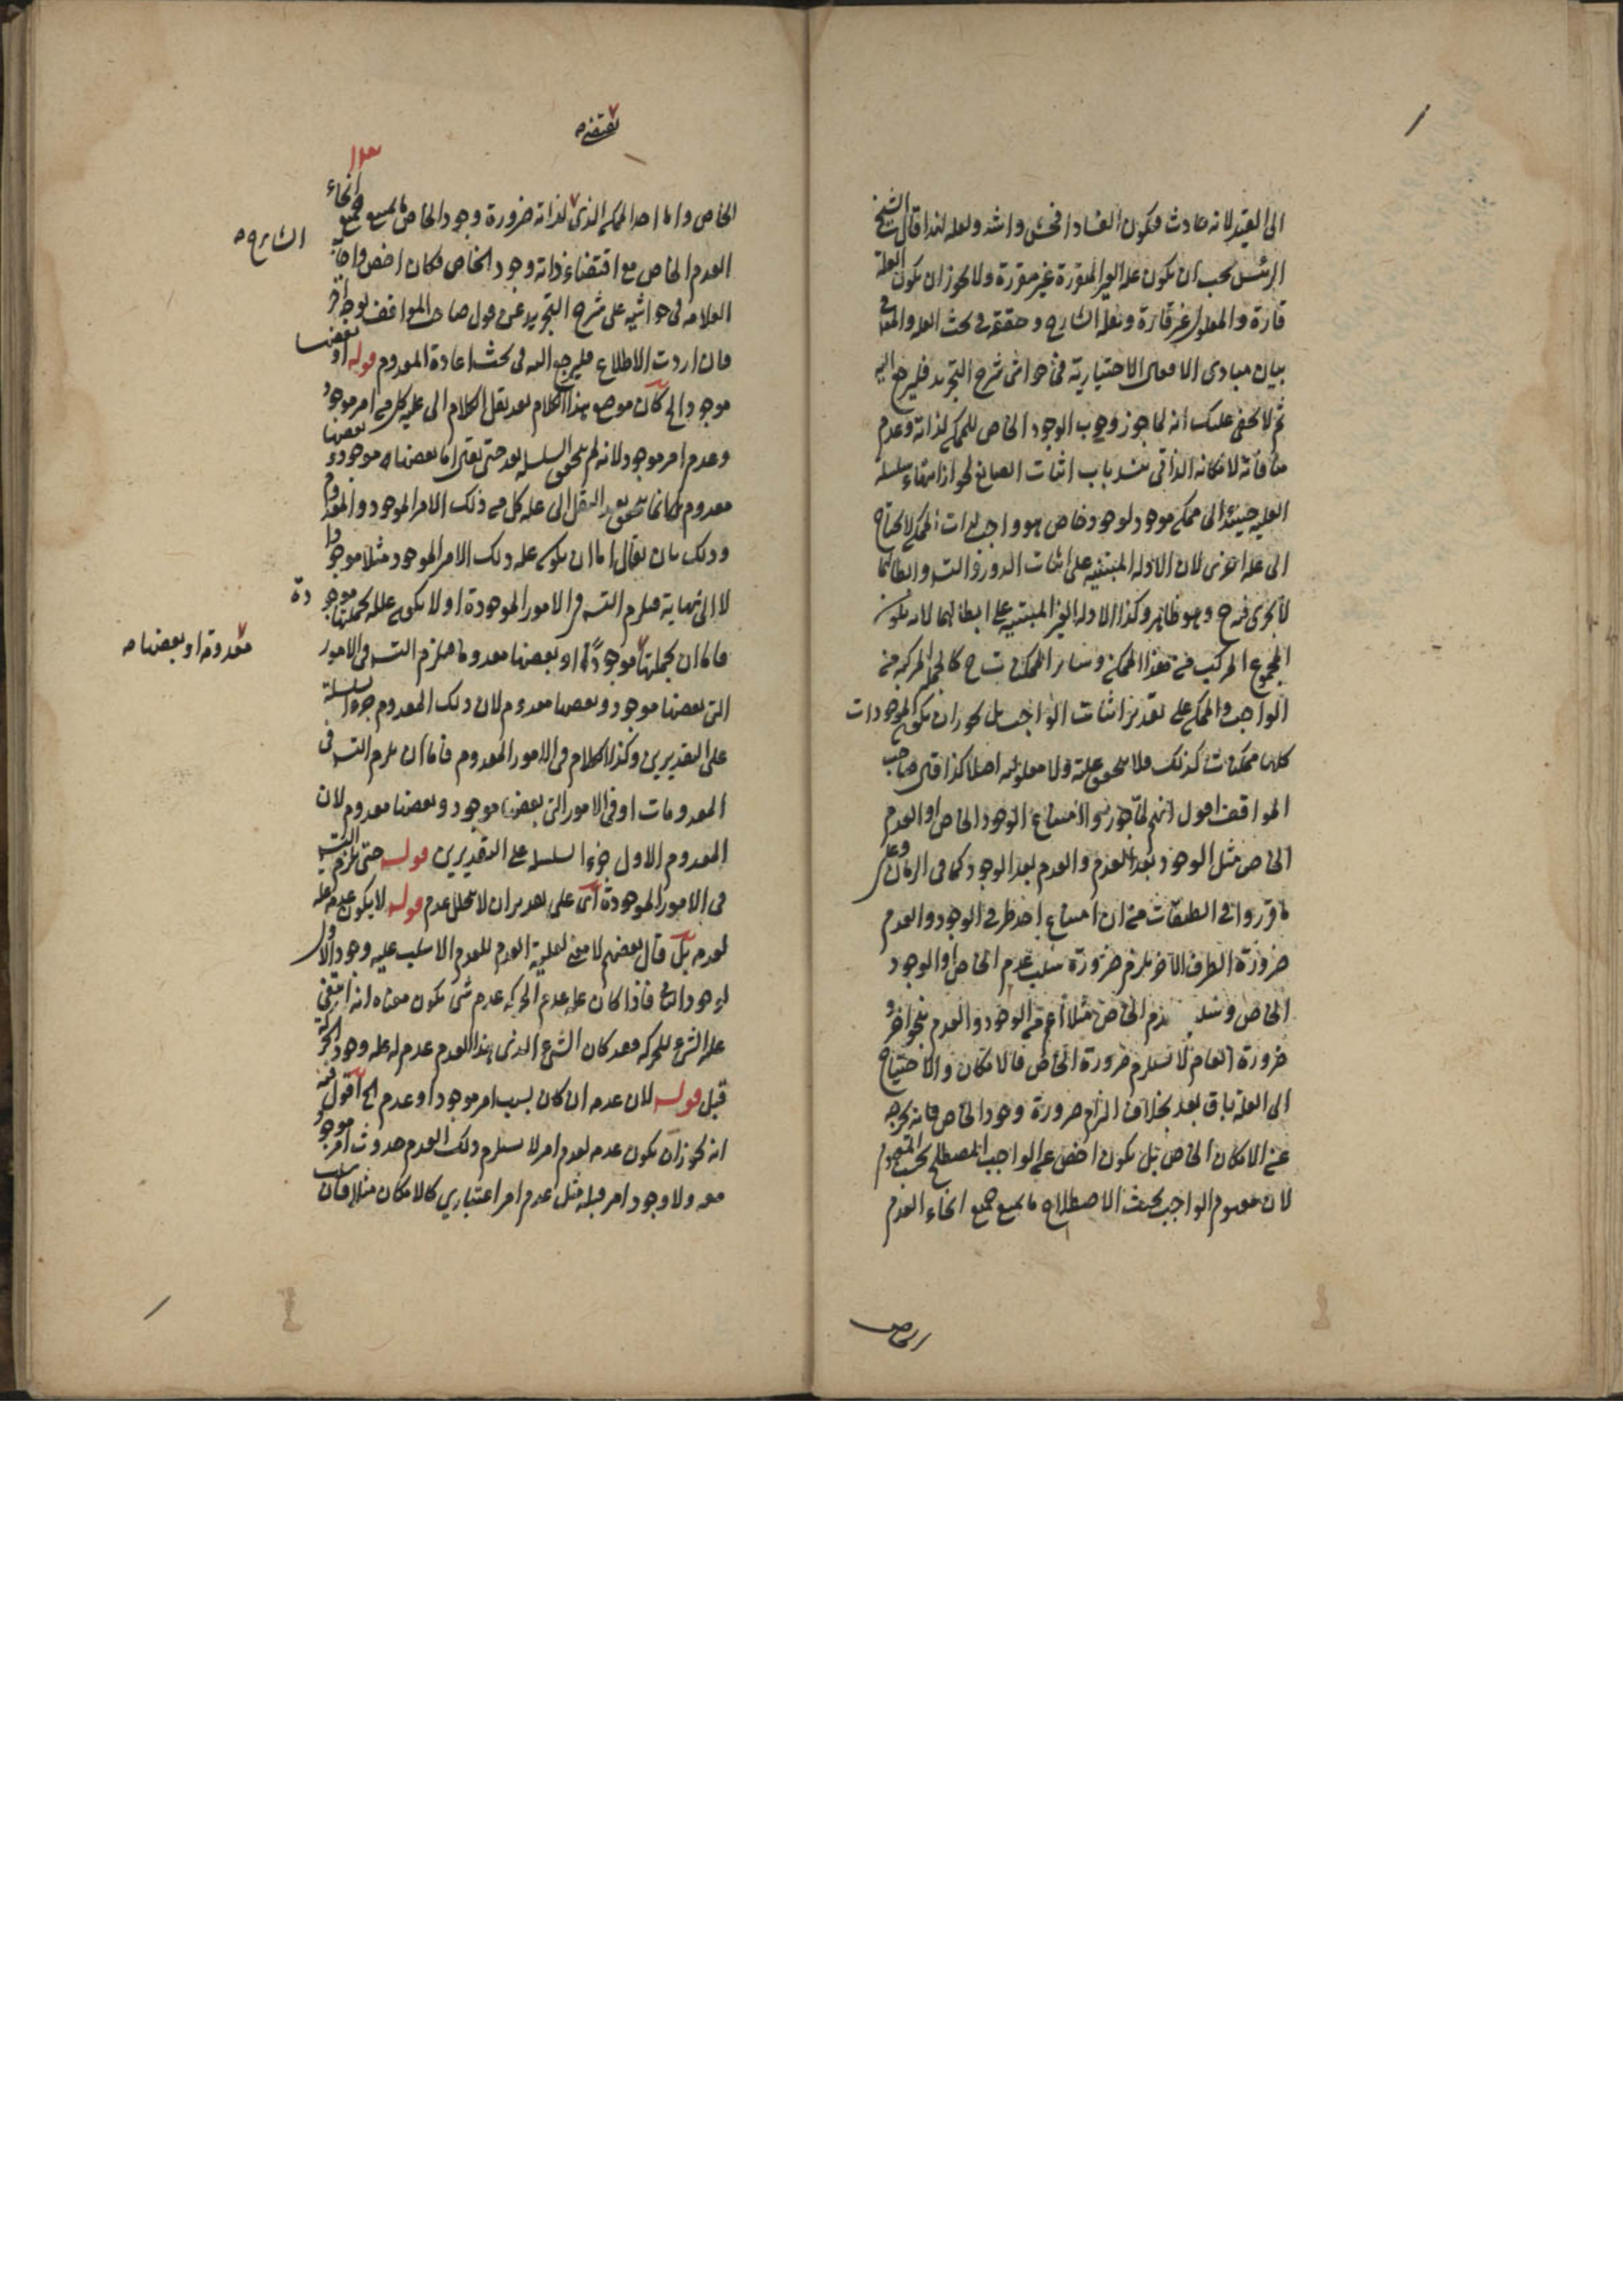 الى القيد لانه حادث فيكون الفساد افحش واشد ولعله لهذا قال الشيخ
الرئيس يجب ان يكون علة الغير المتقررة غير متقررة ولا يجوز ان يكون العلة
قارة والمعلول غير قارة ونقله الشارح وحققه في بحث العلة والمعلول في
بيان مبادى الافعال الاختيارية في حواشى شرح التجريد فليرجع اليه
ثم لا يخفى عليك انه لما جوز وجوب الوجود الخاص للممكن لذاته وعدم
منافاته لامكانه الذاتى ينسد باب اثبات الصانع لجواز انتهاء سلسلة
العلية حينئذ الى ممكن موجود لوجود خاص هو واجب لذات الممكن لا يحتاج
الى علة اخرى لان الادلة المبتنية على اثبات الدور والتسـ وابطالهما
لا يجرى فيه ح وهو ظاهر وكذا الادلة الغير المبتنية على ابطالهما لانه يكون
المجموع المركب من هذا الممكن وسائر الممكنات ح كالجملة المركبة من
الواجب والممكن على تقدير اثبات الواجب بل يجوز ان يكون الموجودات
كلها ممكنات كذلك فلا يتحقق علة ولا معلولية اصلا كذا قال صاحب
المواقف اقول انهم لما جوزوا امتناع الوجود الخاص او العدم
الخاص مثل الوجود بعد العدم والعدم بعد الوجود كما في الزمان وعلى
ما قرروا في الطبقات من ان امتناع احد طرفى الوجود والعدم
ضرورة الطرف الآخر يلزم ضرورة سلب عدم الخاص او الوجود
الخاص وسلب عدم الخاص مثلا اعم من الوجود والعدم بنحو آخر و
ضرورة العام لا يستلزم ضرورة الخاص فالامكان والاحتياج
الى العلة باق بعد بخلاف التزام ضرورة وجود الخاص فانه يخرجه
عن الامكان الخاص بل يكون اخص من الواجب المصطلح بحسب المفهوم
لان مفهوم الواجب بحسب الاصطلاح ما يمتنع جميع انحاء العدم
الخاص
يقتضيه
الخاص واما احد الممكن الذى لذاته ضرورة وجود الخاص ما يمتنع جميع انحاء
العدم الخاص مع اقتضاء ذاته وجود الخاص فكان اخص واجاب
الشارح
العلامة في حواشيه على شرح التجريد عن قول صاحب المواقف بوجه آخر
فان اردت الاطلاع فليرجع اليه في بحث اعادة المعدوم قوله او بعضها
موجودا لح كان موضع هذا الكلام بعد نقل الكلام الى علية كل من امر موجود
وعدم امر موجود لانه لم يتحقق السلسلة بعد حتى يقال اما بعضها موجود و بعضها
معدوم فانما يتحقق بعد النقل الى علة كل من ذلك الامر الموجود والمعدوم
وذلك بان يقال اما ان يكون علة ذلك الامر الموجود مثلا موجودا
لا الى نهاية فيلزم التسـ في الامور الموجودة او لا يكون علله بجملتها موجودة
فاما ان بجملتها موجودة او بعضها معدوما فيلزم التسـ في الامور
معدومة او بعضها
التى بعضها موجود وبعضها معدوم لان ذلك المعدوم جزء السلسلة
على التقديرين وكذا الكلام في الامور المعدوم فاما ان يلزم التسـ في
المعدومات او في الامور التى بعضها موجود وبعضها معدوم لان
المعدوم الاول جزء السلسلة على التقديرين قوله حتى يلزم التسـ
في الامور الموجودة اى على تقدير ان لا يتخلل عدم قوله لا يكون عدمه علة
لعدمه بل قال بعضهم لا معنى لعلية العدم للعدم الا سلب علية وجود الاول
لوجود الثانى فاذا كان علة عدم الحركة عدم شئ يكون معناه انه انتفى
علة الشئ للحركة فقد كان الشئ الذى هذا العدم عدم له علة وجود الحركة
قبل قوله لان عدمه ان كان بسبب امر موجود او عدم الخ اقول فيه
انه يجوز ان يكون عدمه لعدم امر لا يستلزم ذلك العدم حدوث امر موجود
معه ولا وجود امر قبله مثل عدم امر اعتبارى كالامكان مثلا فان سلب